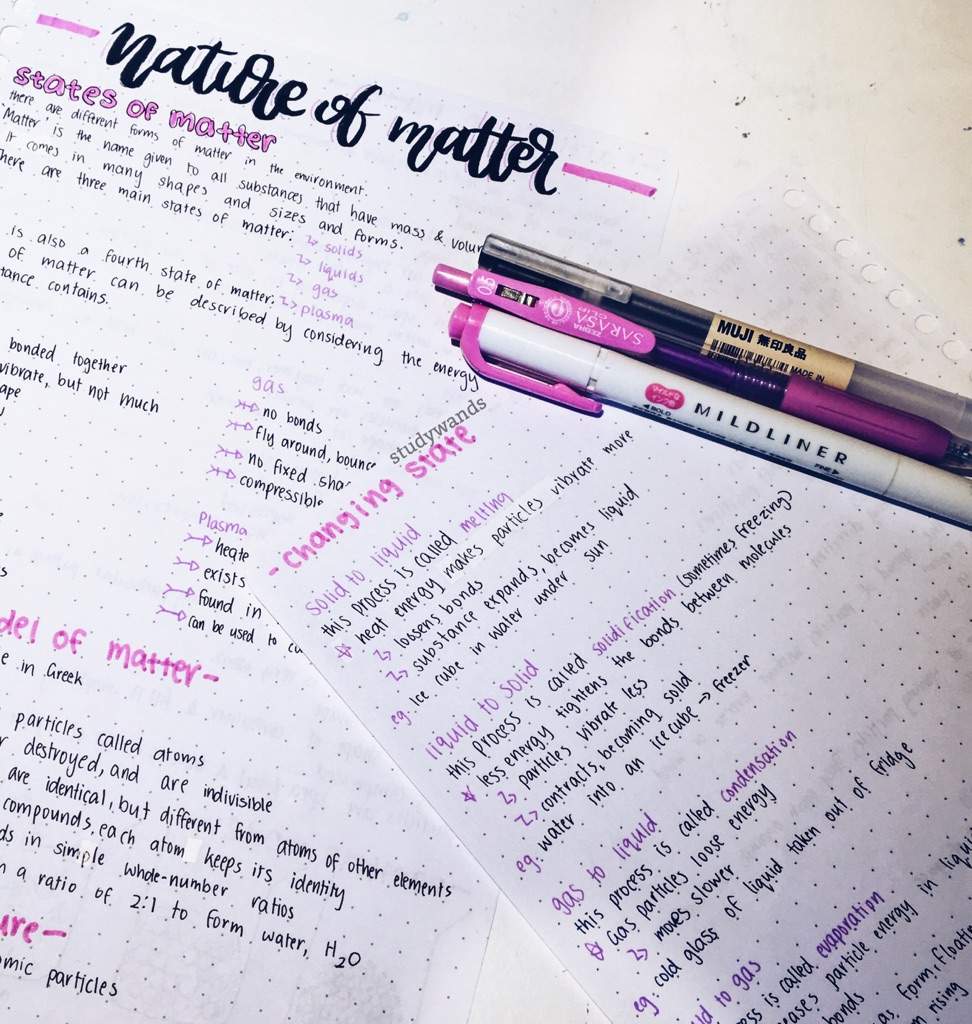 nature of matter
states of matter
there are different forms of matter in the environment.
'Matter' is the name given to all substances that have mass &
It comes in many shapes and sizes and forms.
There are three main states of matter:
solids
liquids
gas
is also a fourth state of matter:
plasma
of matter can be described by considering the energy
contains.
bonded together
vibrate, but not much
gas
no bonds
fly around, bounce
no fixed
compressible
Plasma
heate
exists
found in
can be used to
of matter
in Greek
particles called atoms
destroyed, and are indivisible
are identical, but different from atoms of other elements
compounds, each atom keeps its identity
in simple whole-number ratios
a ratio of 2:1 to form water, H2O
particles
studywands
changing state
solid to liquid
this process is called melting
heat energy makes particles vibrate more
loosens bonds
substance expands, becomes liquid
eg. Ice cube in water under sun
liquid to solid
this process is called solidification (sometimes freezing)
less energy tightens the bonds between molecules
particles vibrate less
contracts, becoming solid
eg. water into an ice cube → freezer
gas to liquid
this process is called condensation
Gas particles loose energy
moves slower
eg. cold glass of liquid taken out of fridge
to gas
is called evaporation
particle energy in
bonds
form, floating
rising
MUJI 無印良品
MADE IN
ZEBRA
SARASA
CLIP
マイルドなインク色
BOLD
MILDLINER
FINE